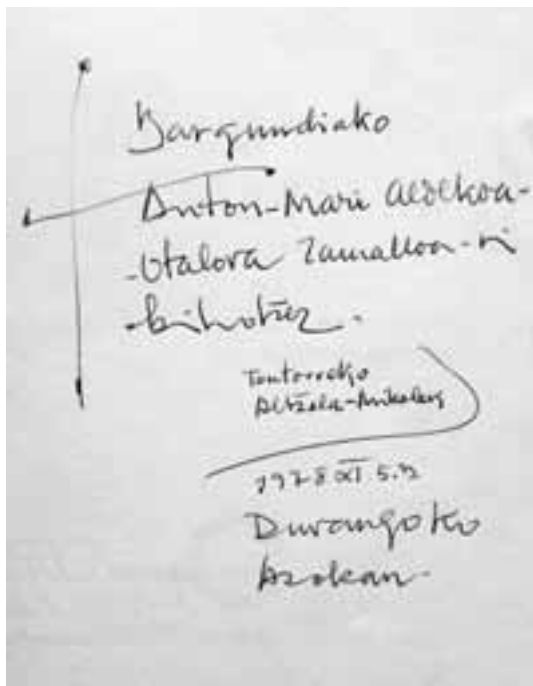 Bargundiako
Anton-Mari Aldekoa-
-Otalora Zamalloa-ri
bihotzez.
Tontorreko
Altzola-Mikaleng
1978 XI 5.n
Durangoko
Azokan.